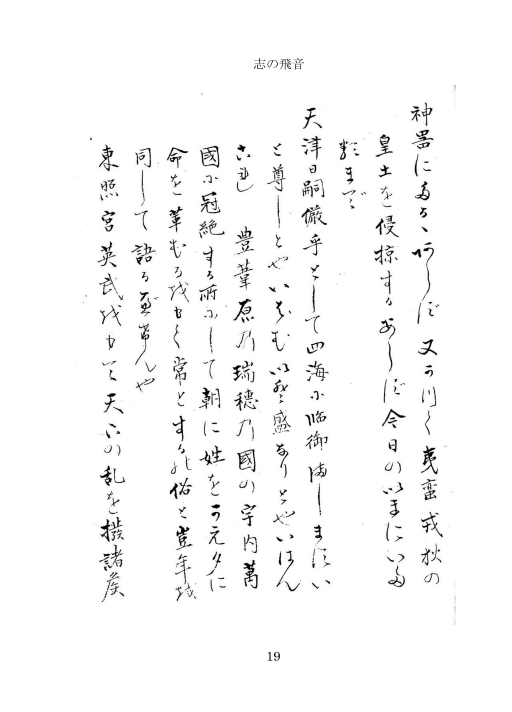 志の飛音
神器にあらそひしに又かつて夷蛮戎狄の
皇土を侵掠するあらず今日のいまにいたる
まで
天津日嗣儼乎として四海に臨御ましますい
と尊しとやいはむいと盛なりとやいはん
これ 豊葦原乃瑞穂乃國の宇内萬
國に冠絶する所にして朝に姓を夕に
命を革むるをもて常とする俗と豈年を
同して語るべけんや
東照宮英武をもて天下の乱を撥諸侯
19